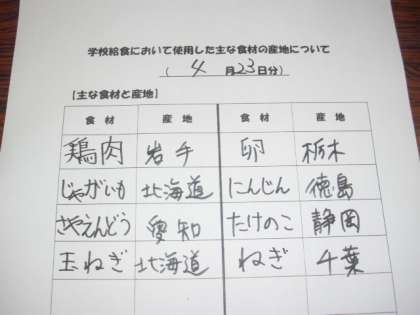 学校給食において使用した主な食材の産地について
( 4 月23日分)
【主な食材と産地】
食 材 産 地 食 材 産 地
鶏肉 岩手 卵 栃木
じゃがいも 北海道 にんじん 徳島
さやえんどう 愛知 たけのこ 静岡
玉ねぎ 北海道 ねぎ 千葉